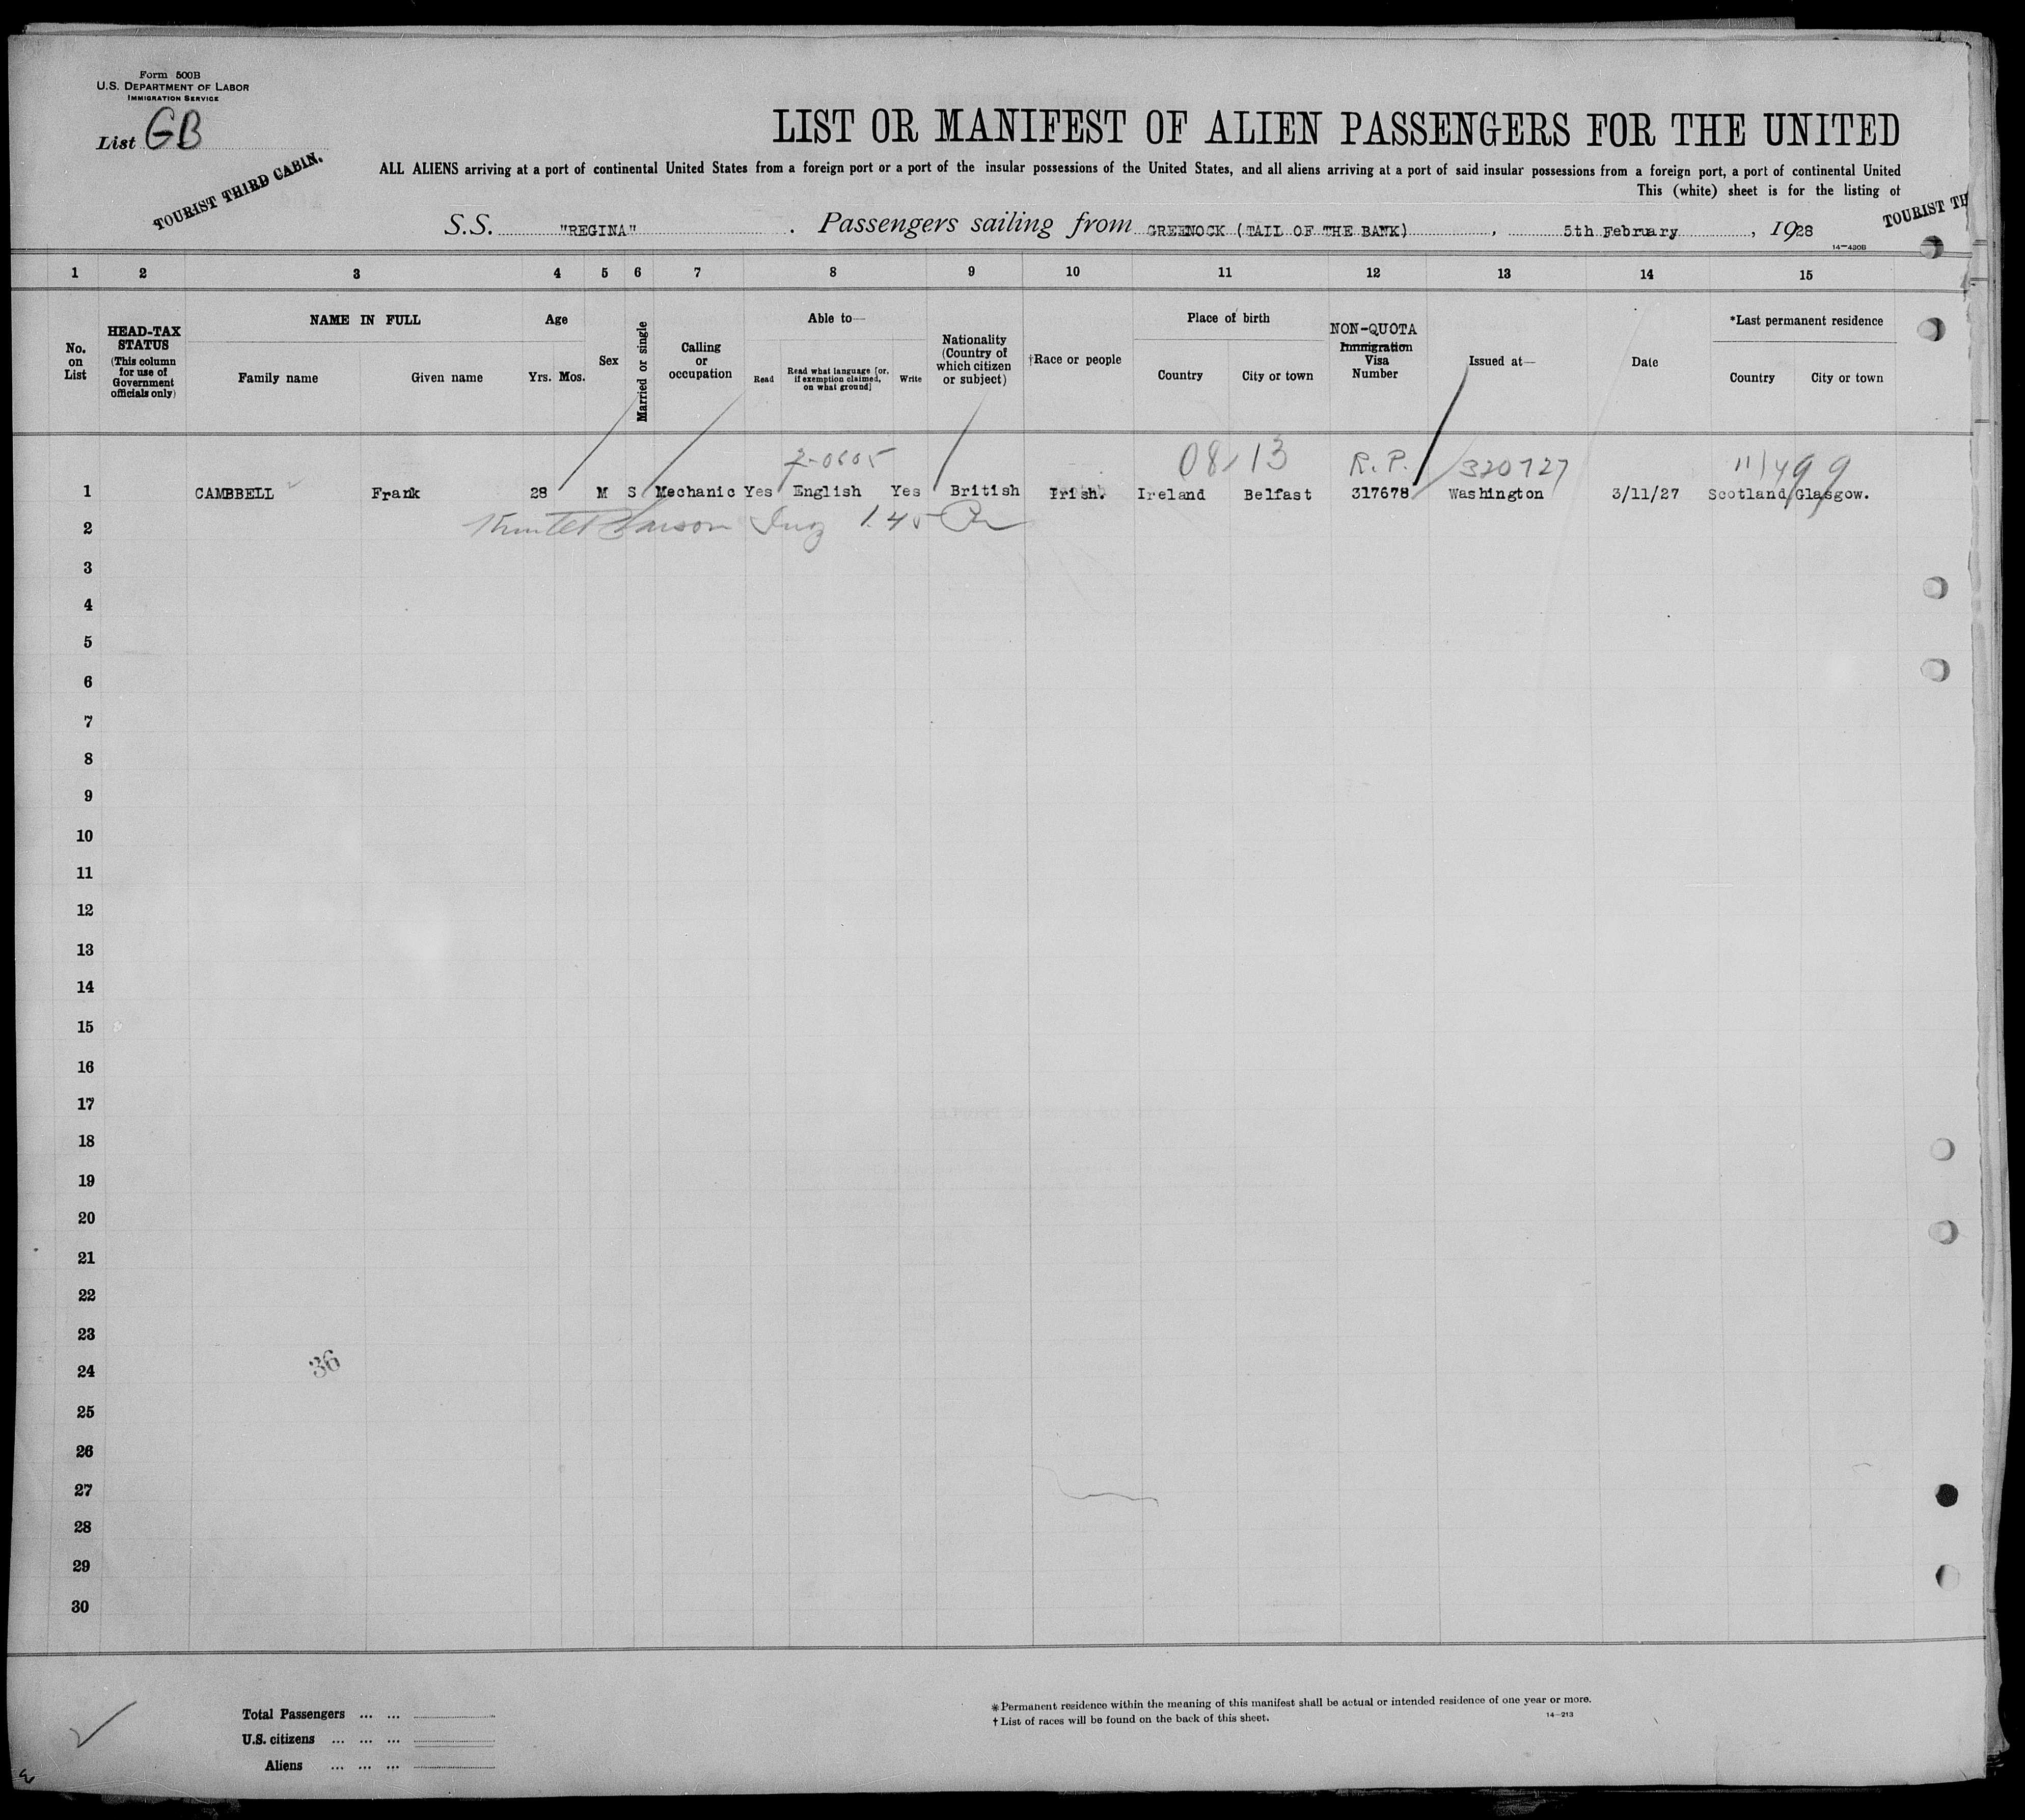 Form 500B
U.S. DEPARTMENT OF LABOR
IMMIGRATION SERVICE
List GB
TOURIST THIRD CABIN.
LIST OR MANIFEST OF ALIEN PASSENGERS FOR THE UNITED
ALL ALIENS arriving at a port of continental United States from a foreign port or a port of the insular possessions of the United States, and all aliens arriving at a port of said insular possessions from a foreign port, a port of continental United
This (white) sheet is for the listing of
TOURIST TH
S.S. "REGINA" . Passengers sailing from GREENOCK (TAIL OF THE BANK) , 5th February , 1928
14—430B
1 2 3 4 5 6 7 8 9 10 11 12 13 14 15
No. on List
HEAD-TAX STATUS
(This column for use of Government officials only)
NAME IN FULL
Family name Given name
Age
Yrs. Mos.
Sex
Married or single
Calling or occupation
Able to—
Read
Read what language [or, if exemption claimed, on what ground]
Write
Nationality (Country of which citizen or subject)
†Race or people
Place of birth
Country City or town
NON-QUOTA
Immigration Visa Number
Issued at—
Date
*Last permanent residence
Country City or town
2-0605 08/13 R.P. 320727 11/499
1 CAMBBELL Frank 28 M S Mechanic Yes English Yes British Irish. Ireland Belfast 317678 Washington 3/11/27 Scotland Glasgow.
2
3
4
5
6
7
8
9
10
11
12
13
14
15
16
17
18
19
20
21
22
23
24 36
25
26
27
28
29
30
Total Passengers ... ...
U.S. citizens ... ... ...
Aliens ... ... ...
* Permanent residence within the meaning of this manifest shall be actual or intended residence of one year or more.
† List of races will be found on the back of this sheet.
14—213